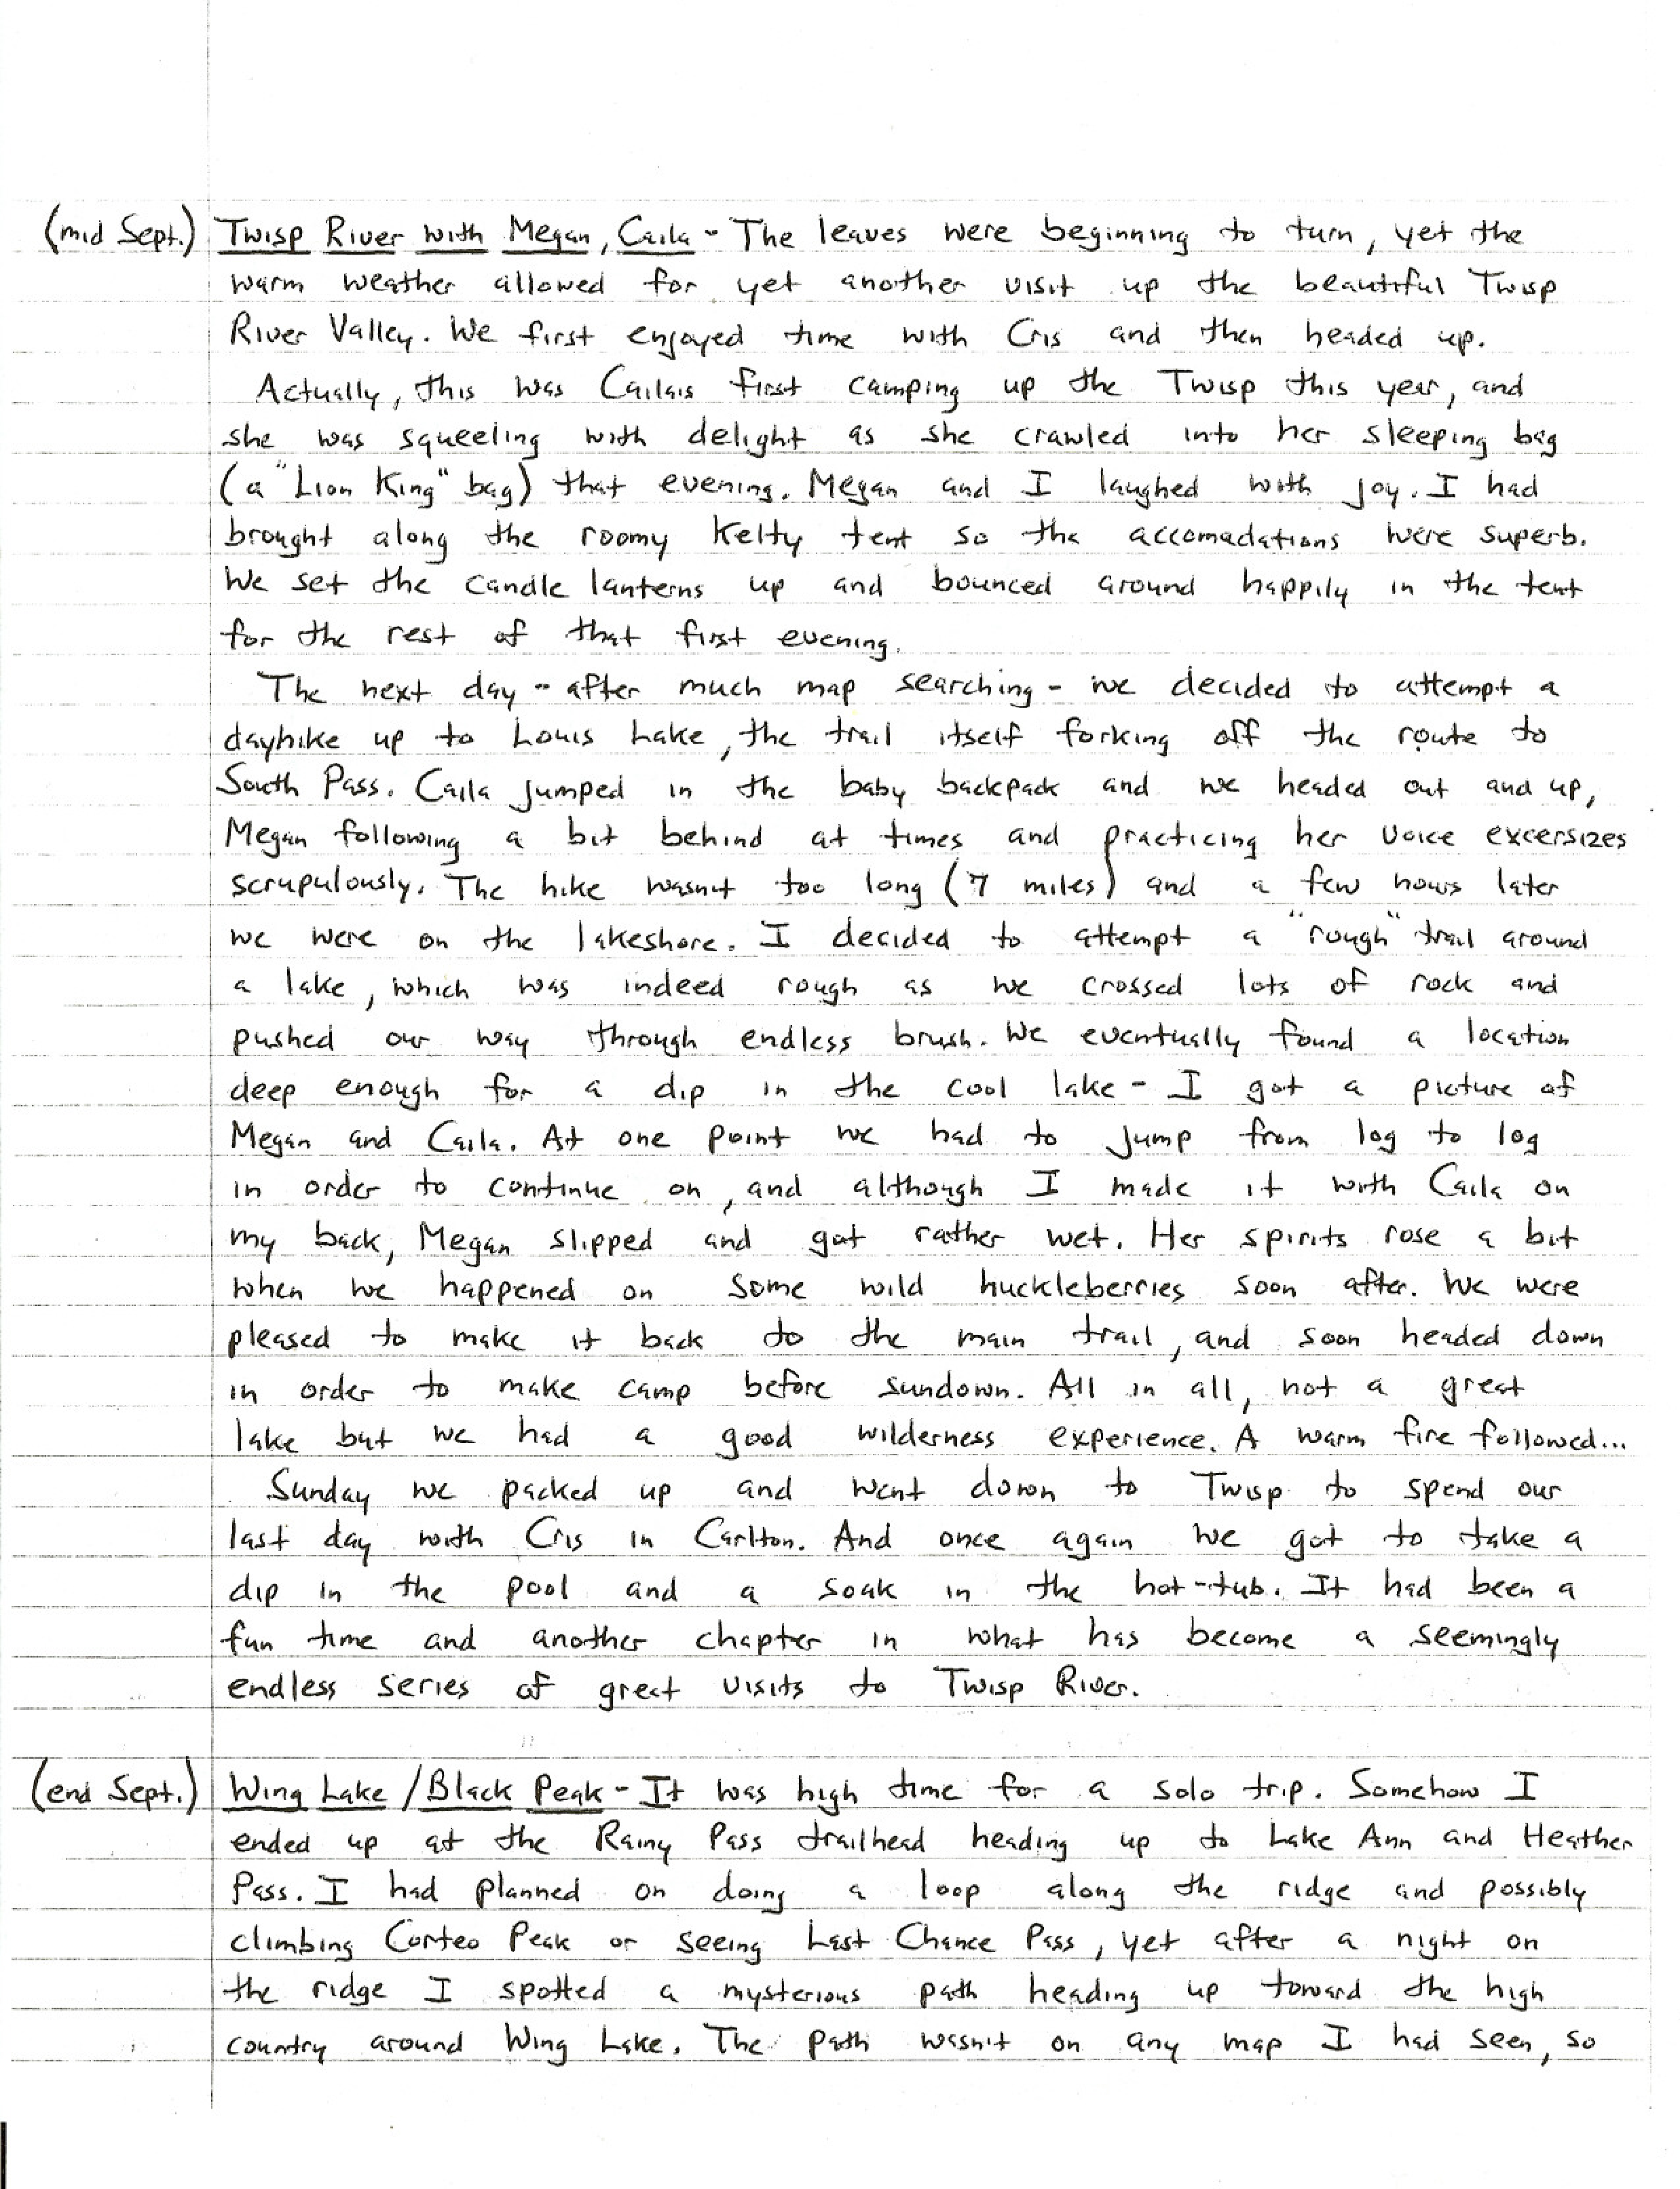 (mid Sept.) Twisp River with Megan, Caila - The leaves were beginning to turn, yet the
warm weather allowed for yet another visit up the beautiful Twisp
River Valley. We first enjoyed time with Cris and then headed up.
Actually, this was Caila's first camping up the Twisp this year, and
she was squeeling with delight as she crawled into her sleeping bag
(a "Lion King" bag) that evening. Megan and I laughed with joy. I had
brought along the roomy Kelty tent so the accomadations were superb.
We set the candle lanterns up and bounced around happily in the tent
for the rest of that first evening.
The next day - after much map searching - we decided to attempt a
dayhike up to Louis Lake, the trail itself forking off the route to
South Pass. Caila jumped in the baby backpack and we headed out and up,
Megan following a bit behind at times and practicing her voice excersizes
scrupulously. The hike wasn't too long (7 miles) and a few hours later
we were on the lakeshore. I decided to attempt a "rough" trail around
a lake, which was indeed rough as we crossed lots of rock and
pushed our way through endless brush. We eventually found a location
deep enough for a dip in the cool lake - I got a picture of
Megan and Caila. At one point we had to jump from log to log
in order to continue on, and although I made it with Caila on
my back, Megan slipped and got rather wet. Her spirits rose a bit
when we happened on some wild huckleberries soon after. We were
pleased to make it back to the main trail, and soon headed down
in order to make camp before sundown. All in all, not a great
lake but we had a good wilderness experience. A warm fire followed...
Sunday we packed up and went down to Twisp to spend our
last day with Cris in Carlton. And once again we got to take a
dip in the pool and a soak in the hot-tub. It had been a
fun time and another chapter in what has become a seemingly
endless series of great visits to Twisp River.
(end Sept.) Wing Lake / Black Peak - It was high time for a solo trip. Somehow I
ended up at the Rainy Pass trailhead heading up to Lake Ann and Heather
Pass. I had planned on doing a loop along the ridge and possibly
climbing Corteo Peak or seeing Last Chance Pass, yet after a night on
the ridge I spotted a mysterious path heading up toward the high
country around Wing Lake. The path wasn't on any map I had seen, so